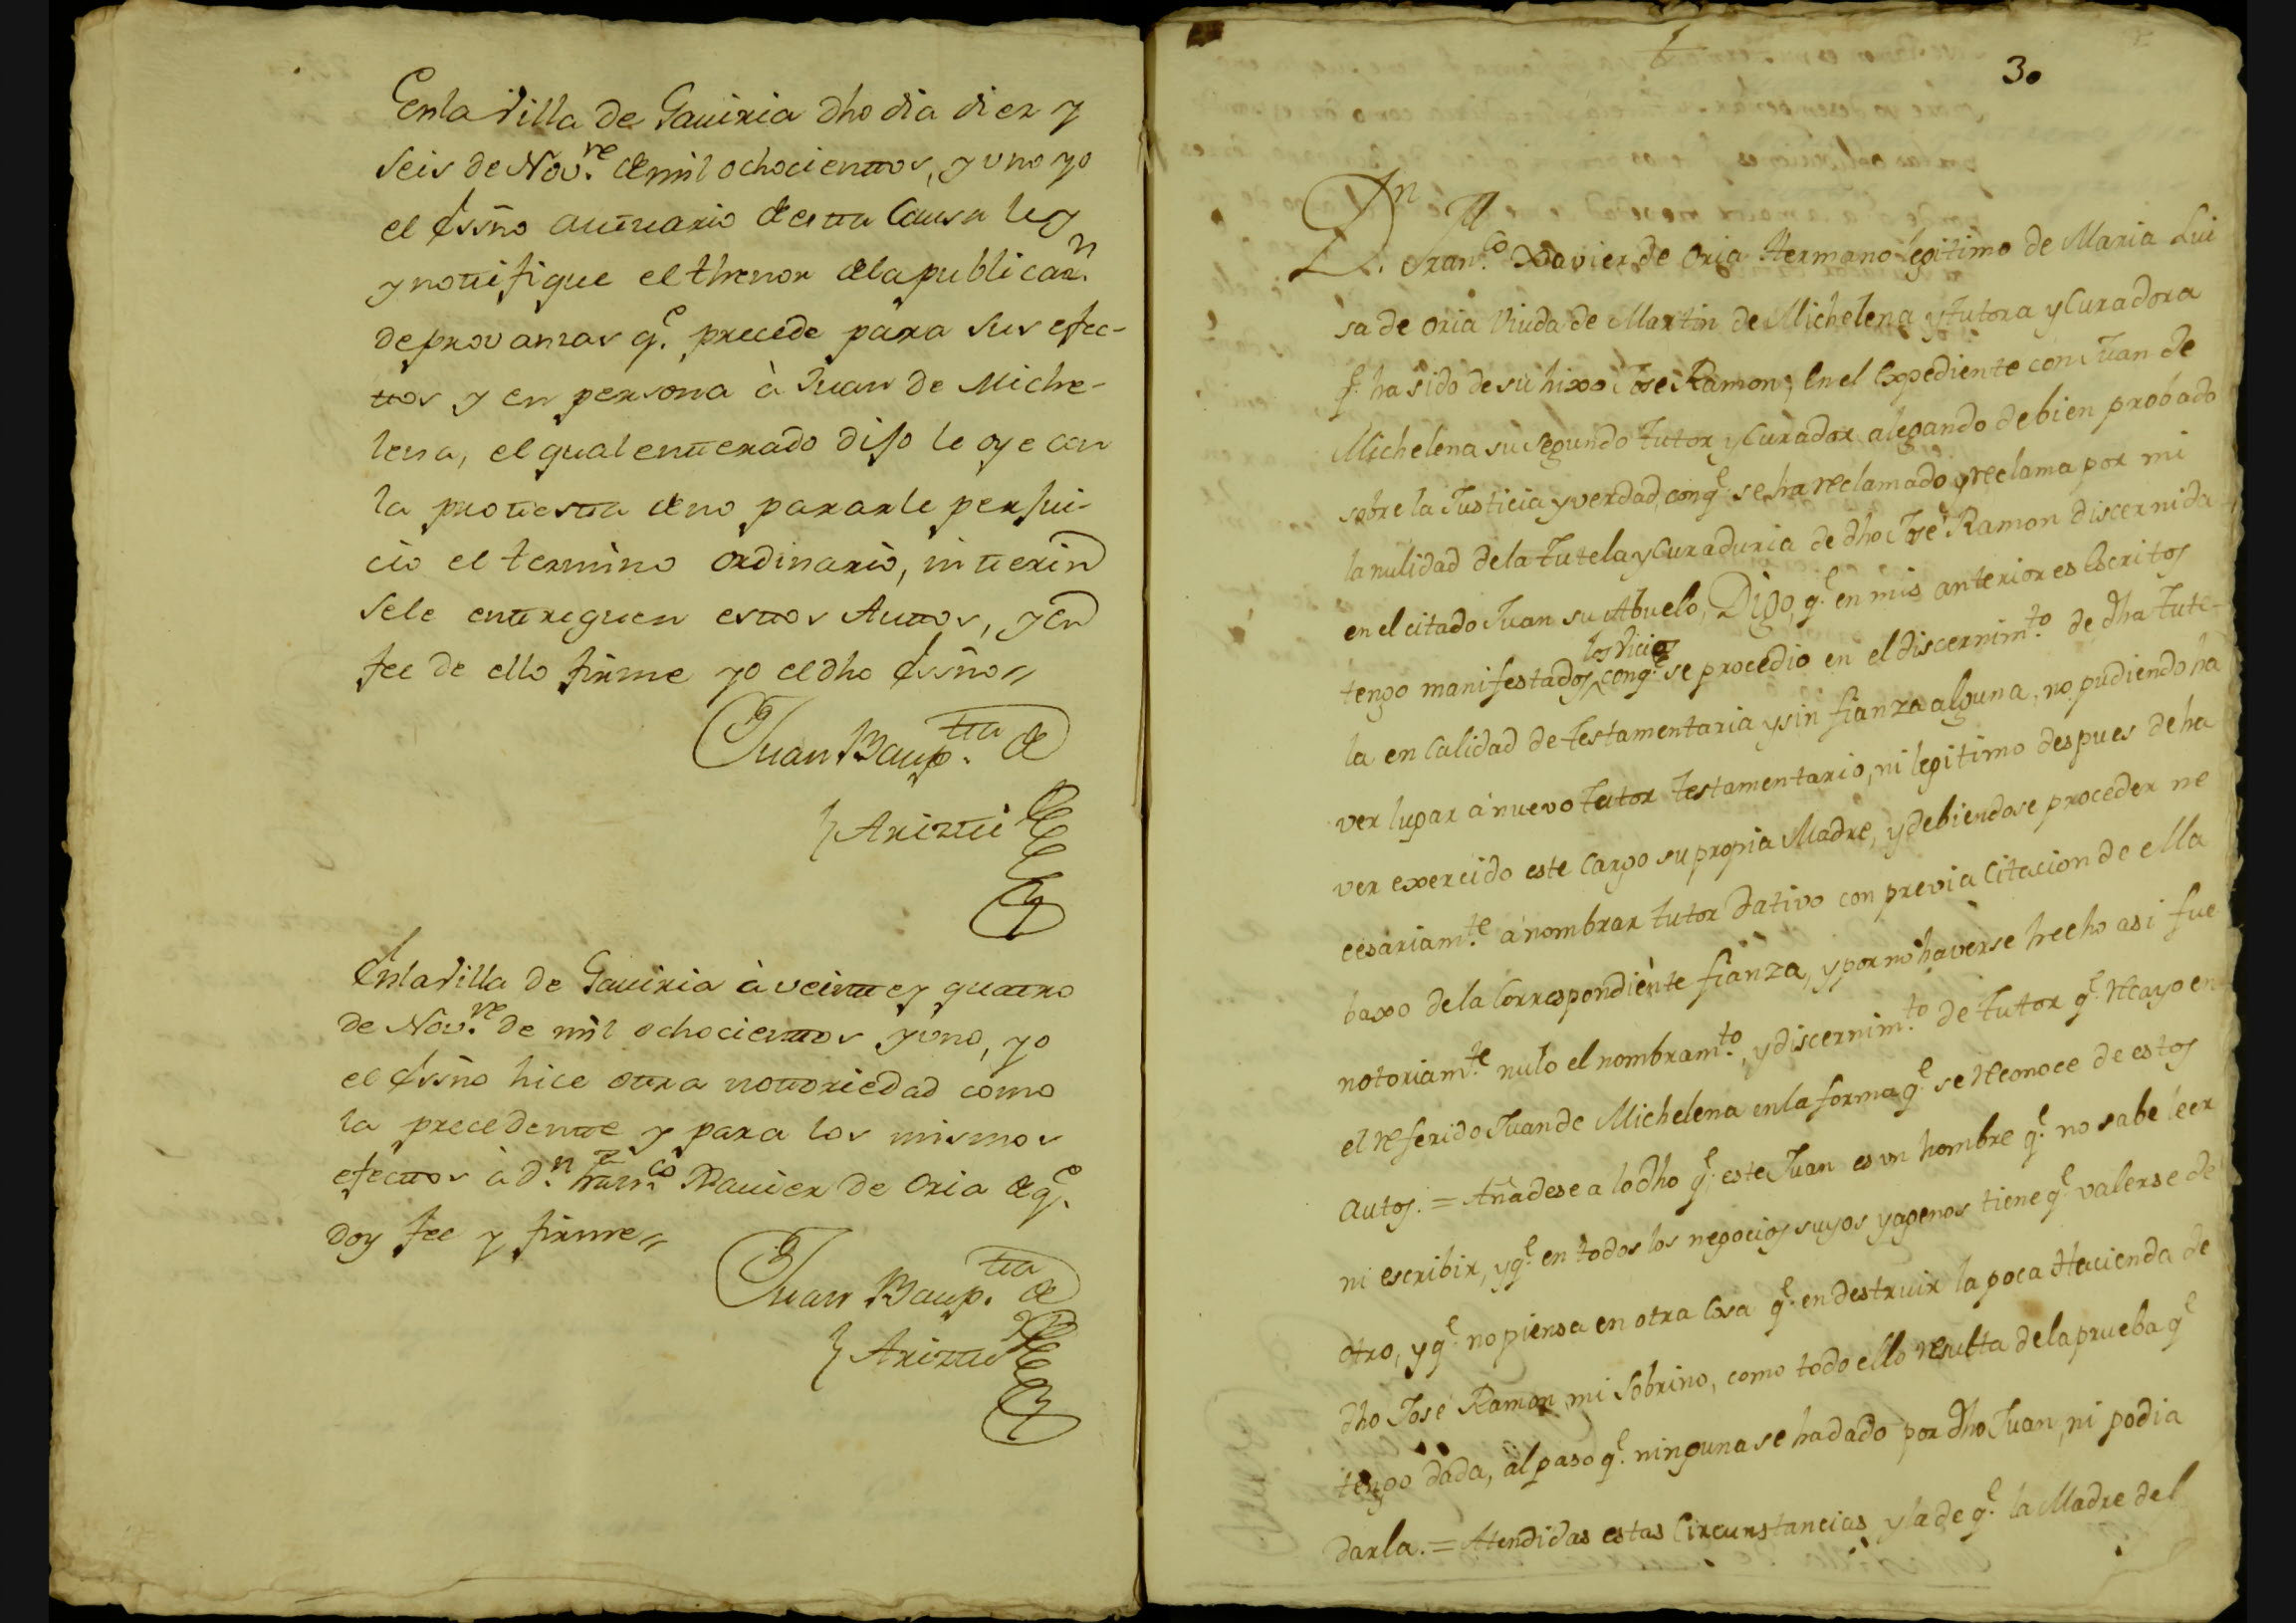 En la Villa de Gaviria dho dia diez y
seis de Nov.re de mil ochocientos, y uno yo
el Essño actuario de esta Causa ley
y notifique el thenor de la publicaz.n
de provanzas q.e precede para sus efec-
tos y en persona à Juan de Miche-
lena, el qual enterado dijo le oye con
la protesta de no pararle perjui-
cio el termino ordinario, interin
sele entreguen estos Autos, y en
fee de ello firme yo el dho Essño=
Juan Baup.tta de
Arizti
En la Villa de Gaviria à veinte y quatro
de Nov.re de mil ochocientos y uno, yo
el Essño hice otra notoriedad como
la precedente y para los mismos
efectos à D.n Fran.co Xavier de Oria de q.e
doy fee y firme=
Juan Baup.tta de
Arizti
30
D.n Fran.co Xavier de Oria Hermano legitimo de Maria Lui
sa de Oria Viuda de Martin de Michelena y tutora y Curadora
q.e ha sido de su hixo Jose Ramon; En el Expediente con Juan de
Michelena su segundo tutor y Curador alegando de bien probado
sobre la Justicia y verdad, con q.e se ha reclamado y reclama por mi
la nulidad de la Tutela y Curaduria de dho José Ramon discernida
en el citado Juan su Abuelo, Digo, q.e en mis anteriores Escritos
los Vicios
tengo manifestados, con q.e se procedio en el discernim.to de dha Tute-
la en Calidad de Testamentaria y sin fianza alguna, no pudiendo ha
ver lugar à nuevo Tutor Testamentario, ni legitimo despues de ha
ver exercido este Cargo su propia Madre, y debiendose proceder ne
cesariam.te à nombrar tutor Dativo con previa Citacion de ella
baxo de la Correspondiente fianza, y por no haverse hecho asi fue
notoriam.te nulo el nombram.to, y discernim.to de Tutor q.e recayo en
el referido Juan de Michelena en la forma q.e se reconoce de estos
Autos. = Añadese a lo dho q.e este Juan es un hombre q.e no sabe leer
ni escribir, y q.e en todos los negocios suyos y agenos tiene q.e valerse de
otro, y q.e no piensa en otra Cosa q.e en destruir la poca Hacienda de
dho José Ramon mi Sobrino, como todo ello resulta de la prueba q.e
tengo dada, al paso q.e ninguna se ha dado por dho Juan, ni podia
darla. = Atendidas estas Circunstancias y la de q.e la Madre del